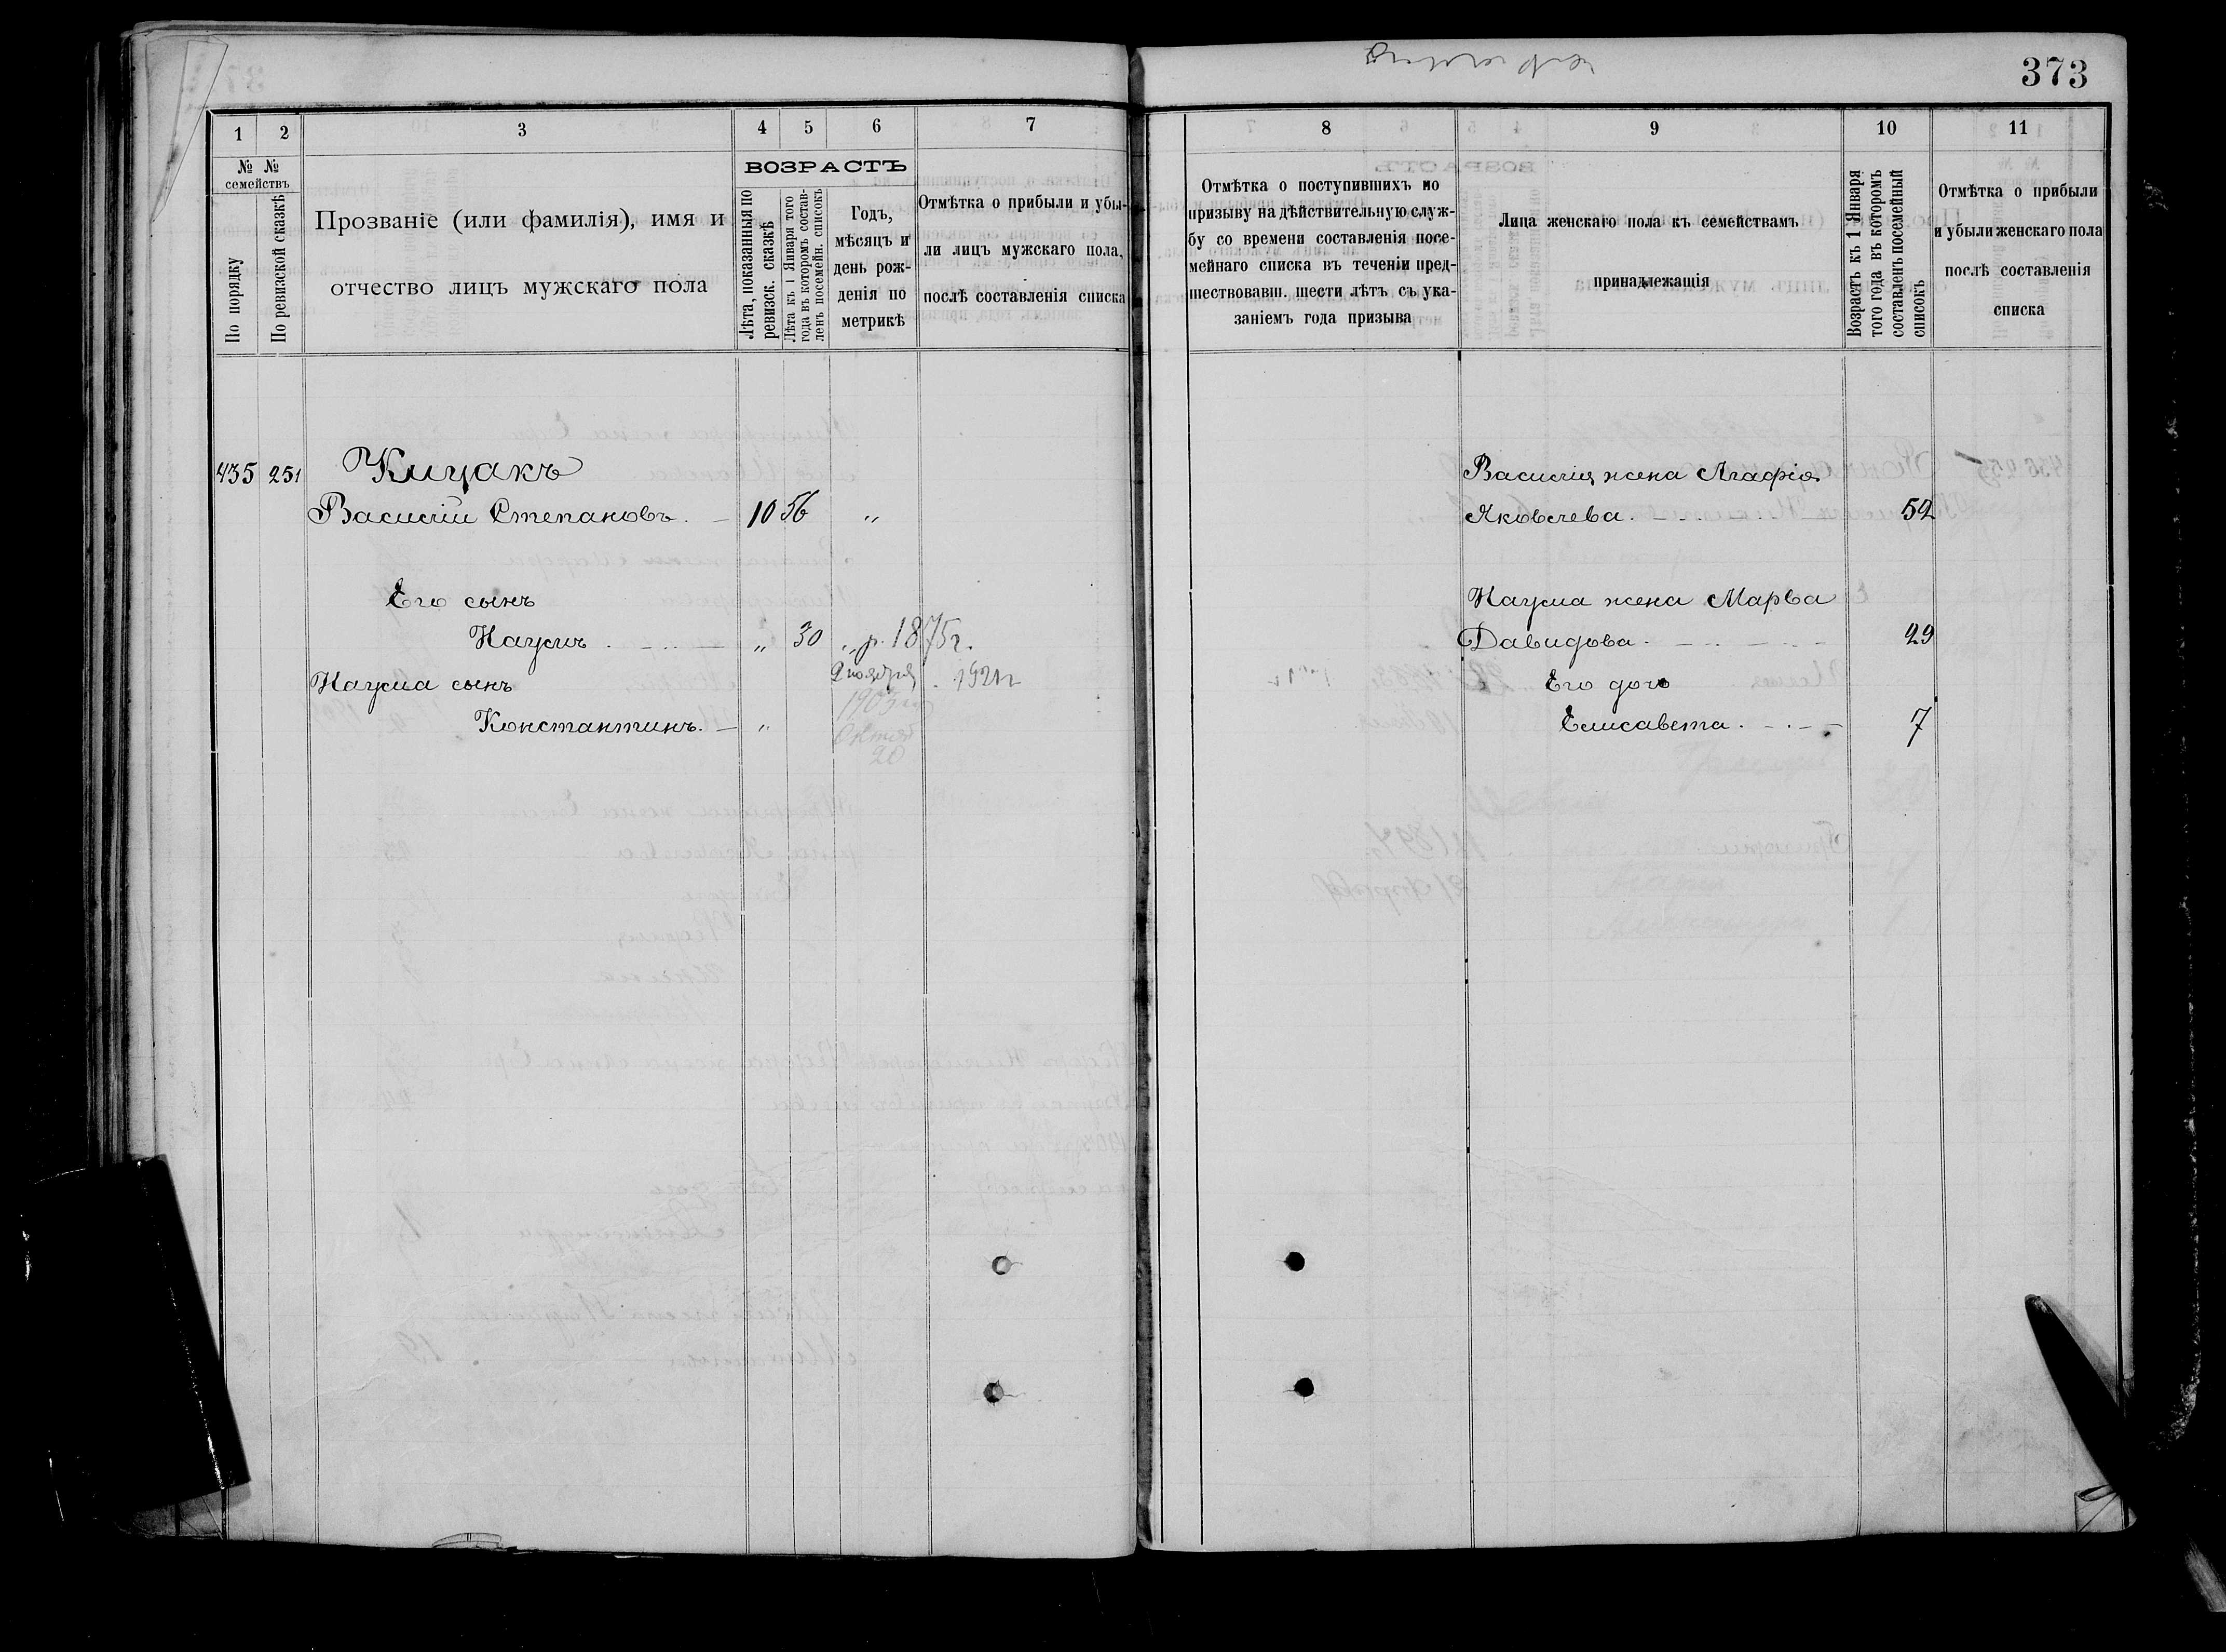 373
1 2 3 4 5 6 7
№ № семействъ
По порядку
По ревизской сказкѣ
Прозваніе (или фамилія), имя и
отчество лицъ мужскаго пола
ВОЗРАСТЪ
Лѣта, показанныя по
ревизск. сказкѣ
Лѣта къ 1 Января того
года въ которомъ состав-
ленъ посемейн. списокъ
Годъ,
мѣсяцъ и
день рож-
денія по
метрикѣ
Отмѣтка о прибыли и убы-
ли лицъ мужскаго пола,
послѣ составленія списка
8 9 10 11
Отмѣтка о поступившихъ по
призыву на дѣйствительную служ-
бу со времени составленія посе-
мейнаго списка въ теченіи пред-
шествовавш. шести лѣтъ съ ука-
заніемъ года призыва
Лица женскаго пола къ семействамъ
принадлежащія
Возрастъ къ 1 Января
того года въ которомъ
составленъ посемейный
списокъ
Отмѣтка о прибыли
и убыли женскаго пола
послѣ составленія
списка
435 251 Кицакъ
Василій Степановъ. 10 56 "
Его сынъ
Наумъ " 30 " р. 1875 г.
Наума сынъ 2 ноября 1921 г
1903
Константинъ. "
Октяб
20
Василія жена Агафія
Яковлева. 52
Наума жена Марѳа
Давидова. 29
Его дочь
Елисавета. 7